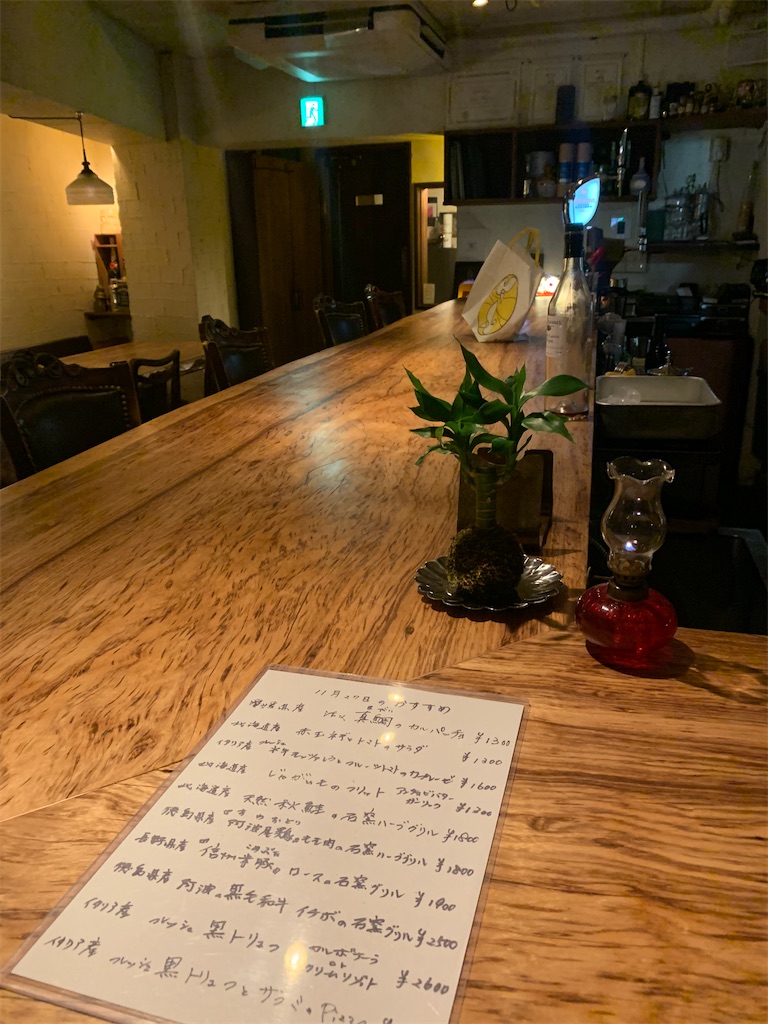 11月27日のおすすめ
真鯛のカルパッチョ ¥1300
北海道産 赤玉ネギとトマトのサラダ ¥1200
イタリア産 水牛モッツァレラとフルーツトマトのカプレーゼ ¥1600
北海道産 じゃがいものフリット アンチョビバター ガーリック ¥1200
北海道産 天然秋鮭の石窯ハーブグリル ¥1800
徳島県産 阿波尾鶏のもも肉の石窯ハーブグリル ¥1800
長野県産 信州 ロースの石窯グリル ¥1900
徳島県産 阿波の黒毛和牛 イチボの石窯グリル ¥2500
イタリア産 フレッシュ黒トリュフ カルボナーラ or クリームリゾット ¥2600
イタリア産 フレッシュ黒トリュフと のPizza